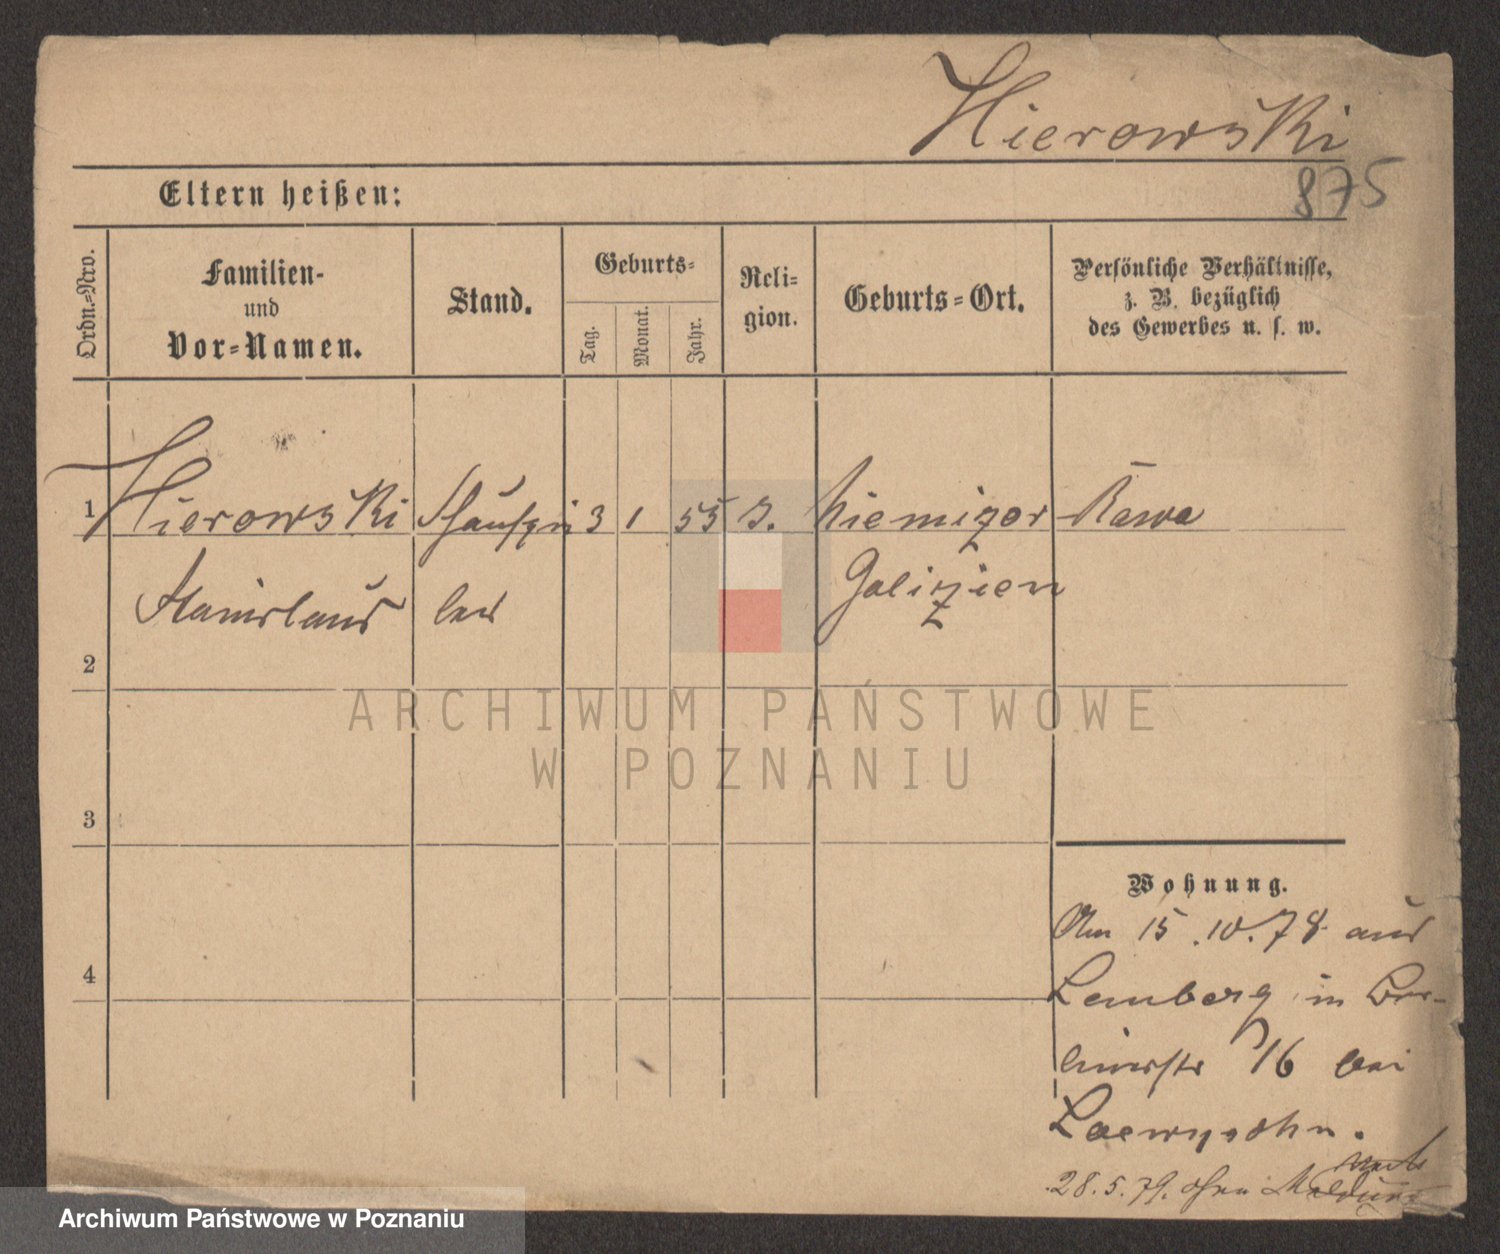 Hierowski
875
Eltern heißen:
Ordn.-Nro.
Familien-
und
Vor-Namen.
Stand.
Geburts-
Tag.
Monat.
Jahr.
Reli-
gion.
Geburts-Ort.
Persönliche Verhältnisse,
z. B. bezüglich
des Gewerbes u. s. w.
1 Hierowski Schauspie 3 1 55 Rawa
Stanislaus ler Galizien
2
3
4
Wohnung.
Am 15.10.78 aus
Lemberg in Ber-
linerstr 16 bei
Loewysohn.
28.5.79. ohne Meldung
ARCHIWUM PAŃSTWOWE
W POZNANIU
Archiwum Państwowe w Poznaniu